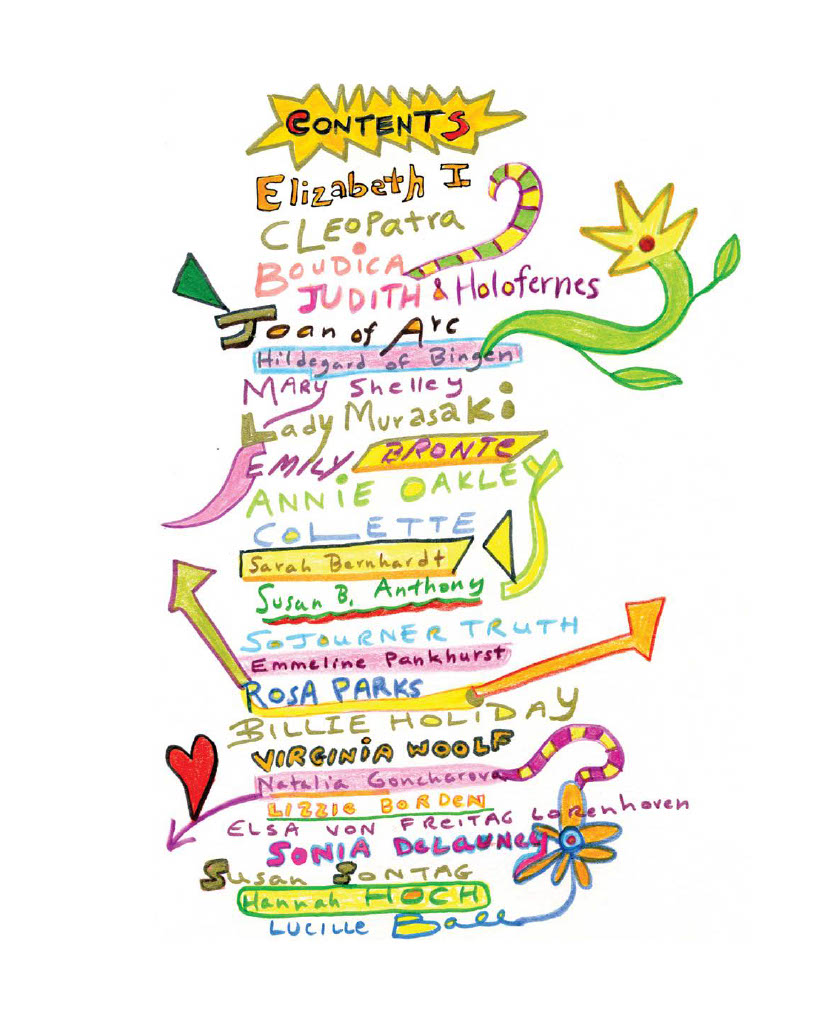 CONTENTS
Elizabeth I
CLEOPatra
BOUDICA
JUDITH & Holofernes
Joan of Arc
Hildegard of Bingen
MARY Shelley
Lady Murasaki
EMILY BRONTE
ANNIE OAKLEY
COLETTE
Sarah Bernhardt
Susan B. Anthony
SOJOURNER TRUTH
Emmeline Pankhurst
ROSA PARKS
BILLIE HOLIDAY
VIRGINIA WOOLF
Natalia Goncharova
LIZZIE BORDEN
ELSA VON FREITAG LORENHOVEN
SONIA DELAUNEY
Susan SONTAG
Hannah HOCH
LUCILLE Ball